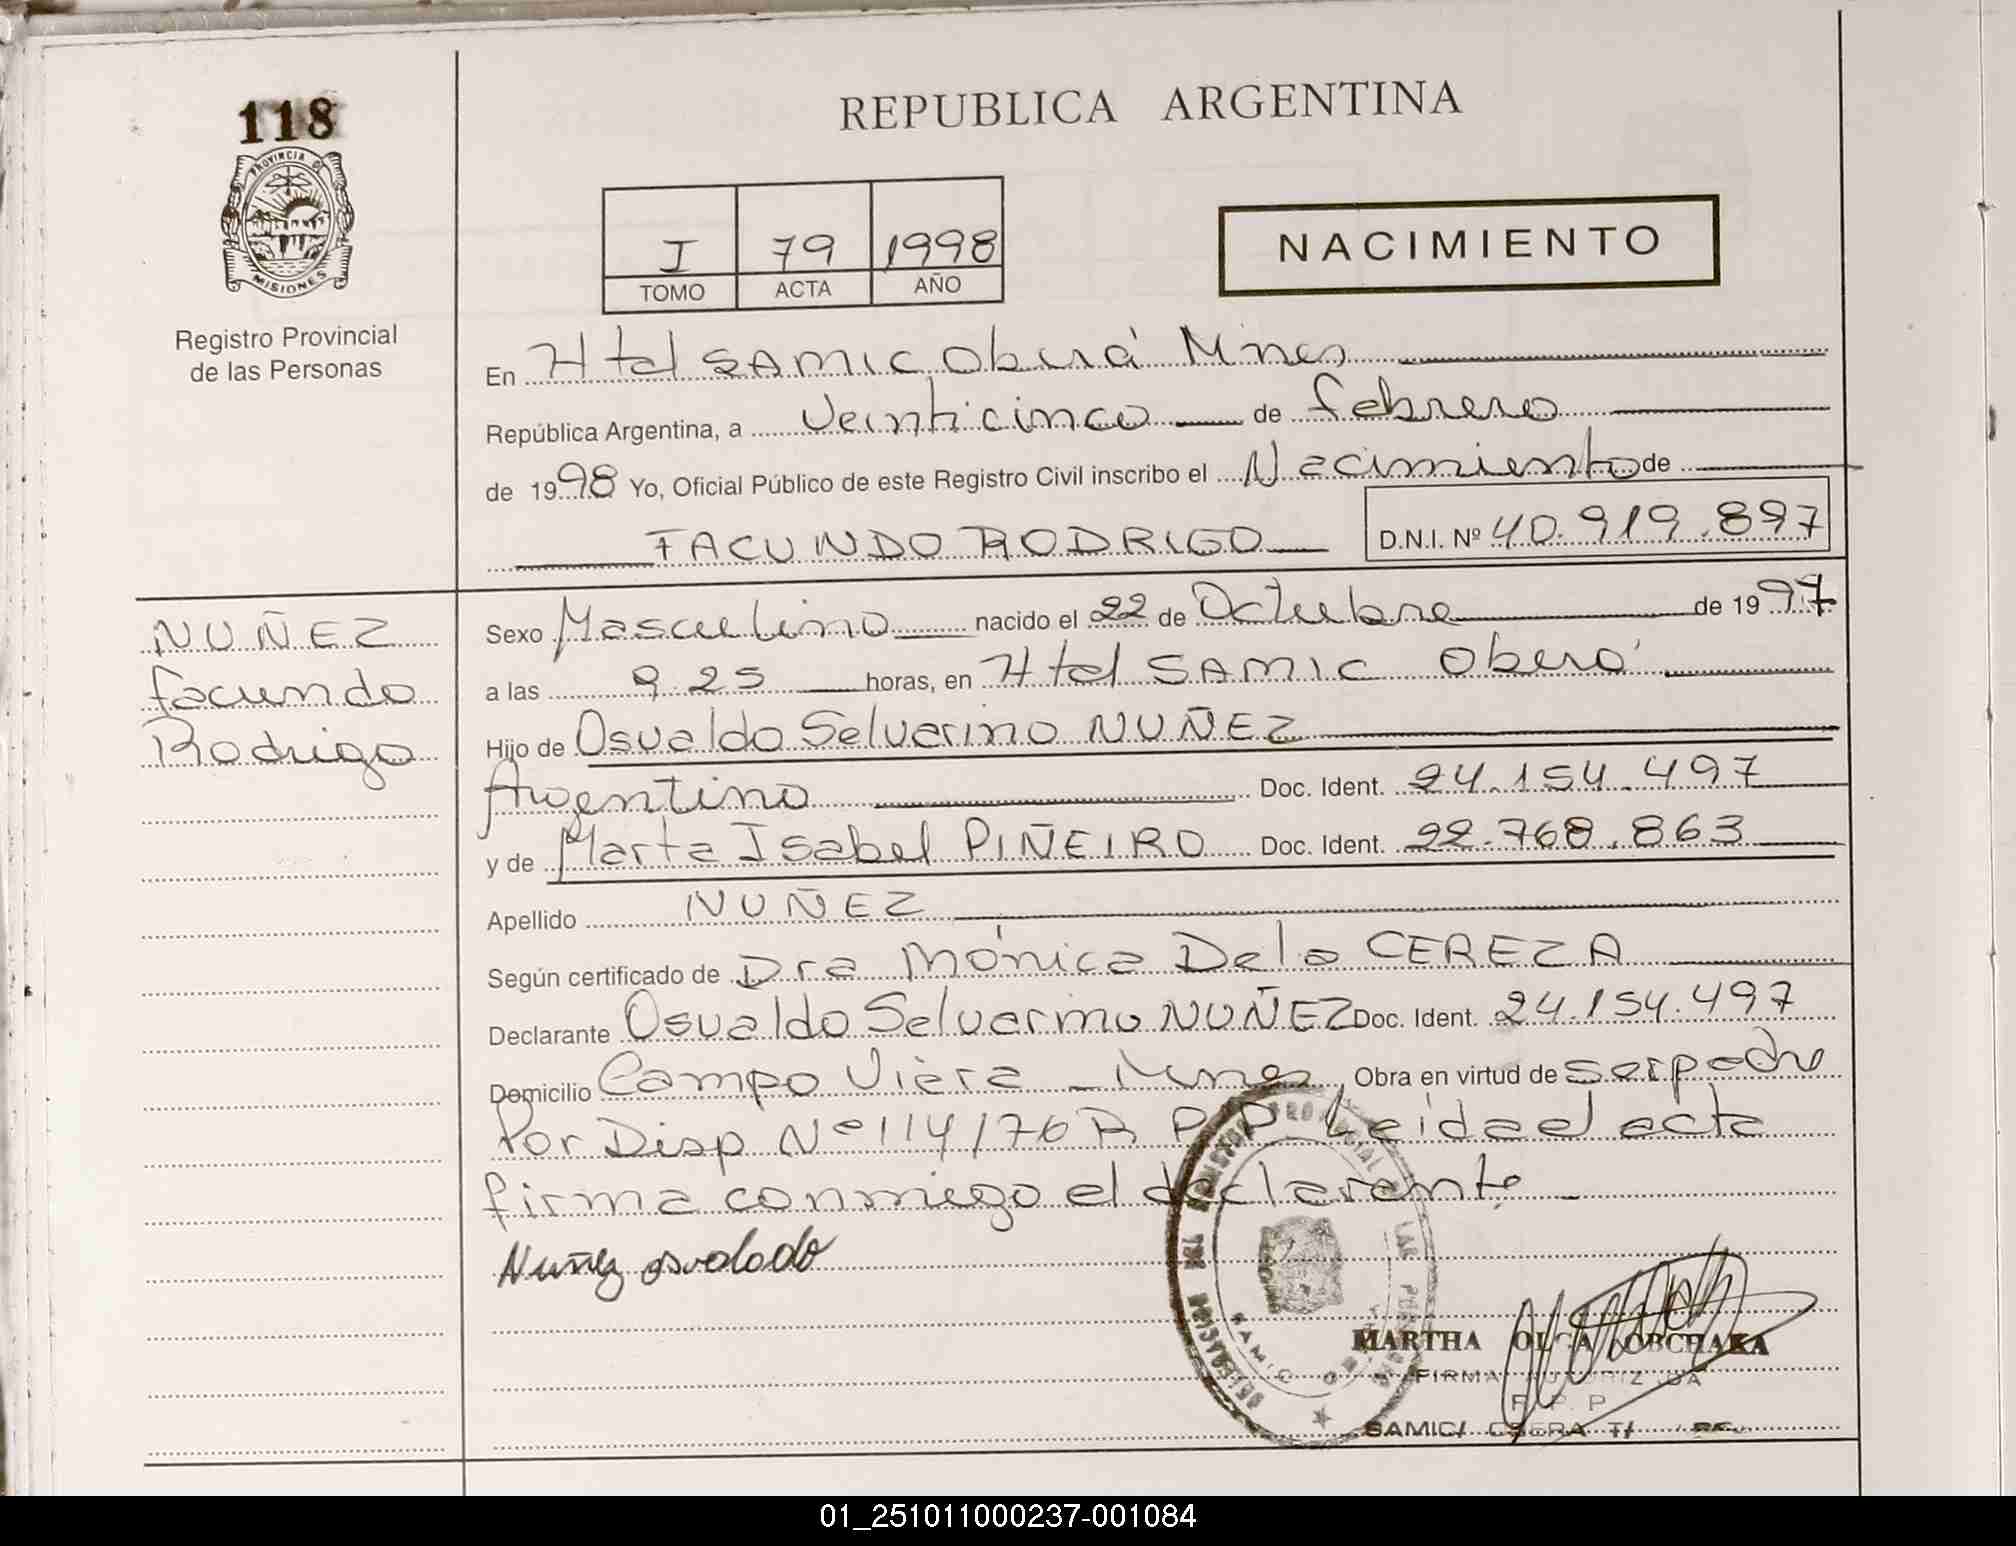 118
PROVINCIA DE
MISIONES
Registro Provincial
de las Personas
REPUBLICA ARGENTINA
I 79 1998
TOMO ACTA AÑO
NACIMIENTO
En Htal SAMIC Oberá Mnes
República Argentina, a veinticinco de febrero
de 1998 Yo, Oficial Público de este Registro Civil inscribo el Nacimiento de
FACUNDO RODRIGO D.N.I. Nº 40.919.897
NUÑEZ
Facundo
Rodrigo
Sexo Masculino nacido el 22 de Octubre de 1997
a las 9.25 horas, en Htal SAMIC Oberá
Hijo de Osvaldo Selverino NUÑEZ
Argentino Doc. Ident. 24.154.497
y de Marta Isabel PIÑEIRO Doc. Ident. 22.768.863
Apellido NUÑEZ
Según certificado de Dra Mónica De la CEREZA
Declarante Osvaldo Selverino NUÑEZ Doc. Ident. 24.154.497
Domicilio Campo Viera Mnes Obra en virtud de ser padre
Por Disp Nº 114/76 R P P Leida el acta
firma conmigo el declarante
Nuñez osvaldo
MARTHA OLGA
FIRMA AUTORIZADA
R. P. P
SAMIC
01_251011000237-001084